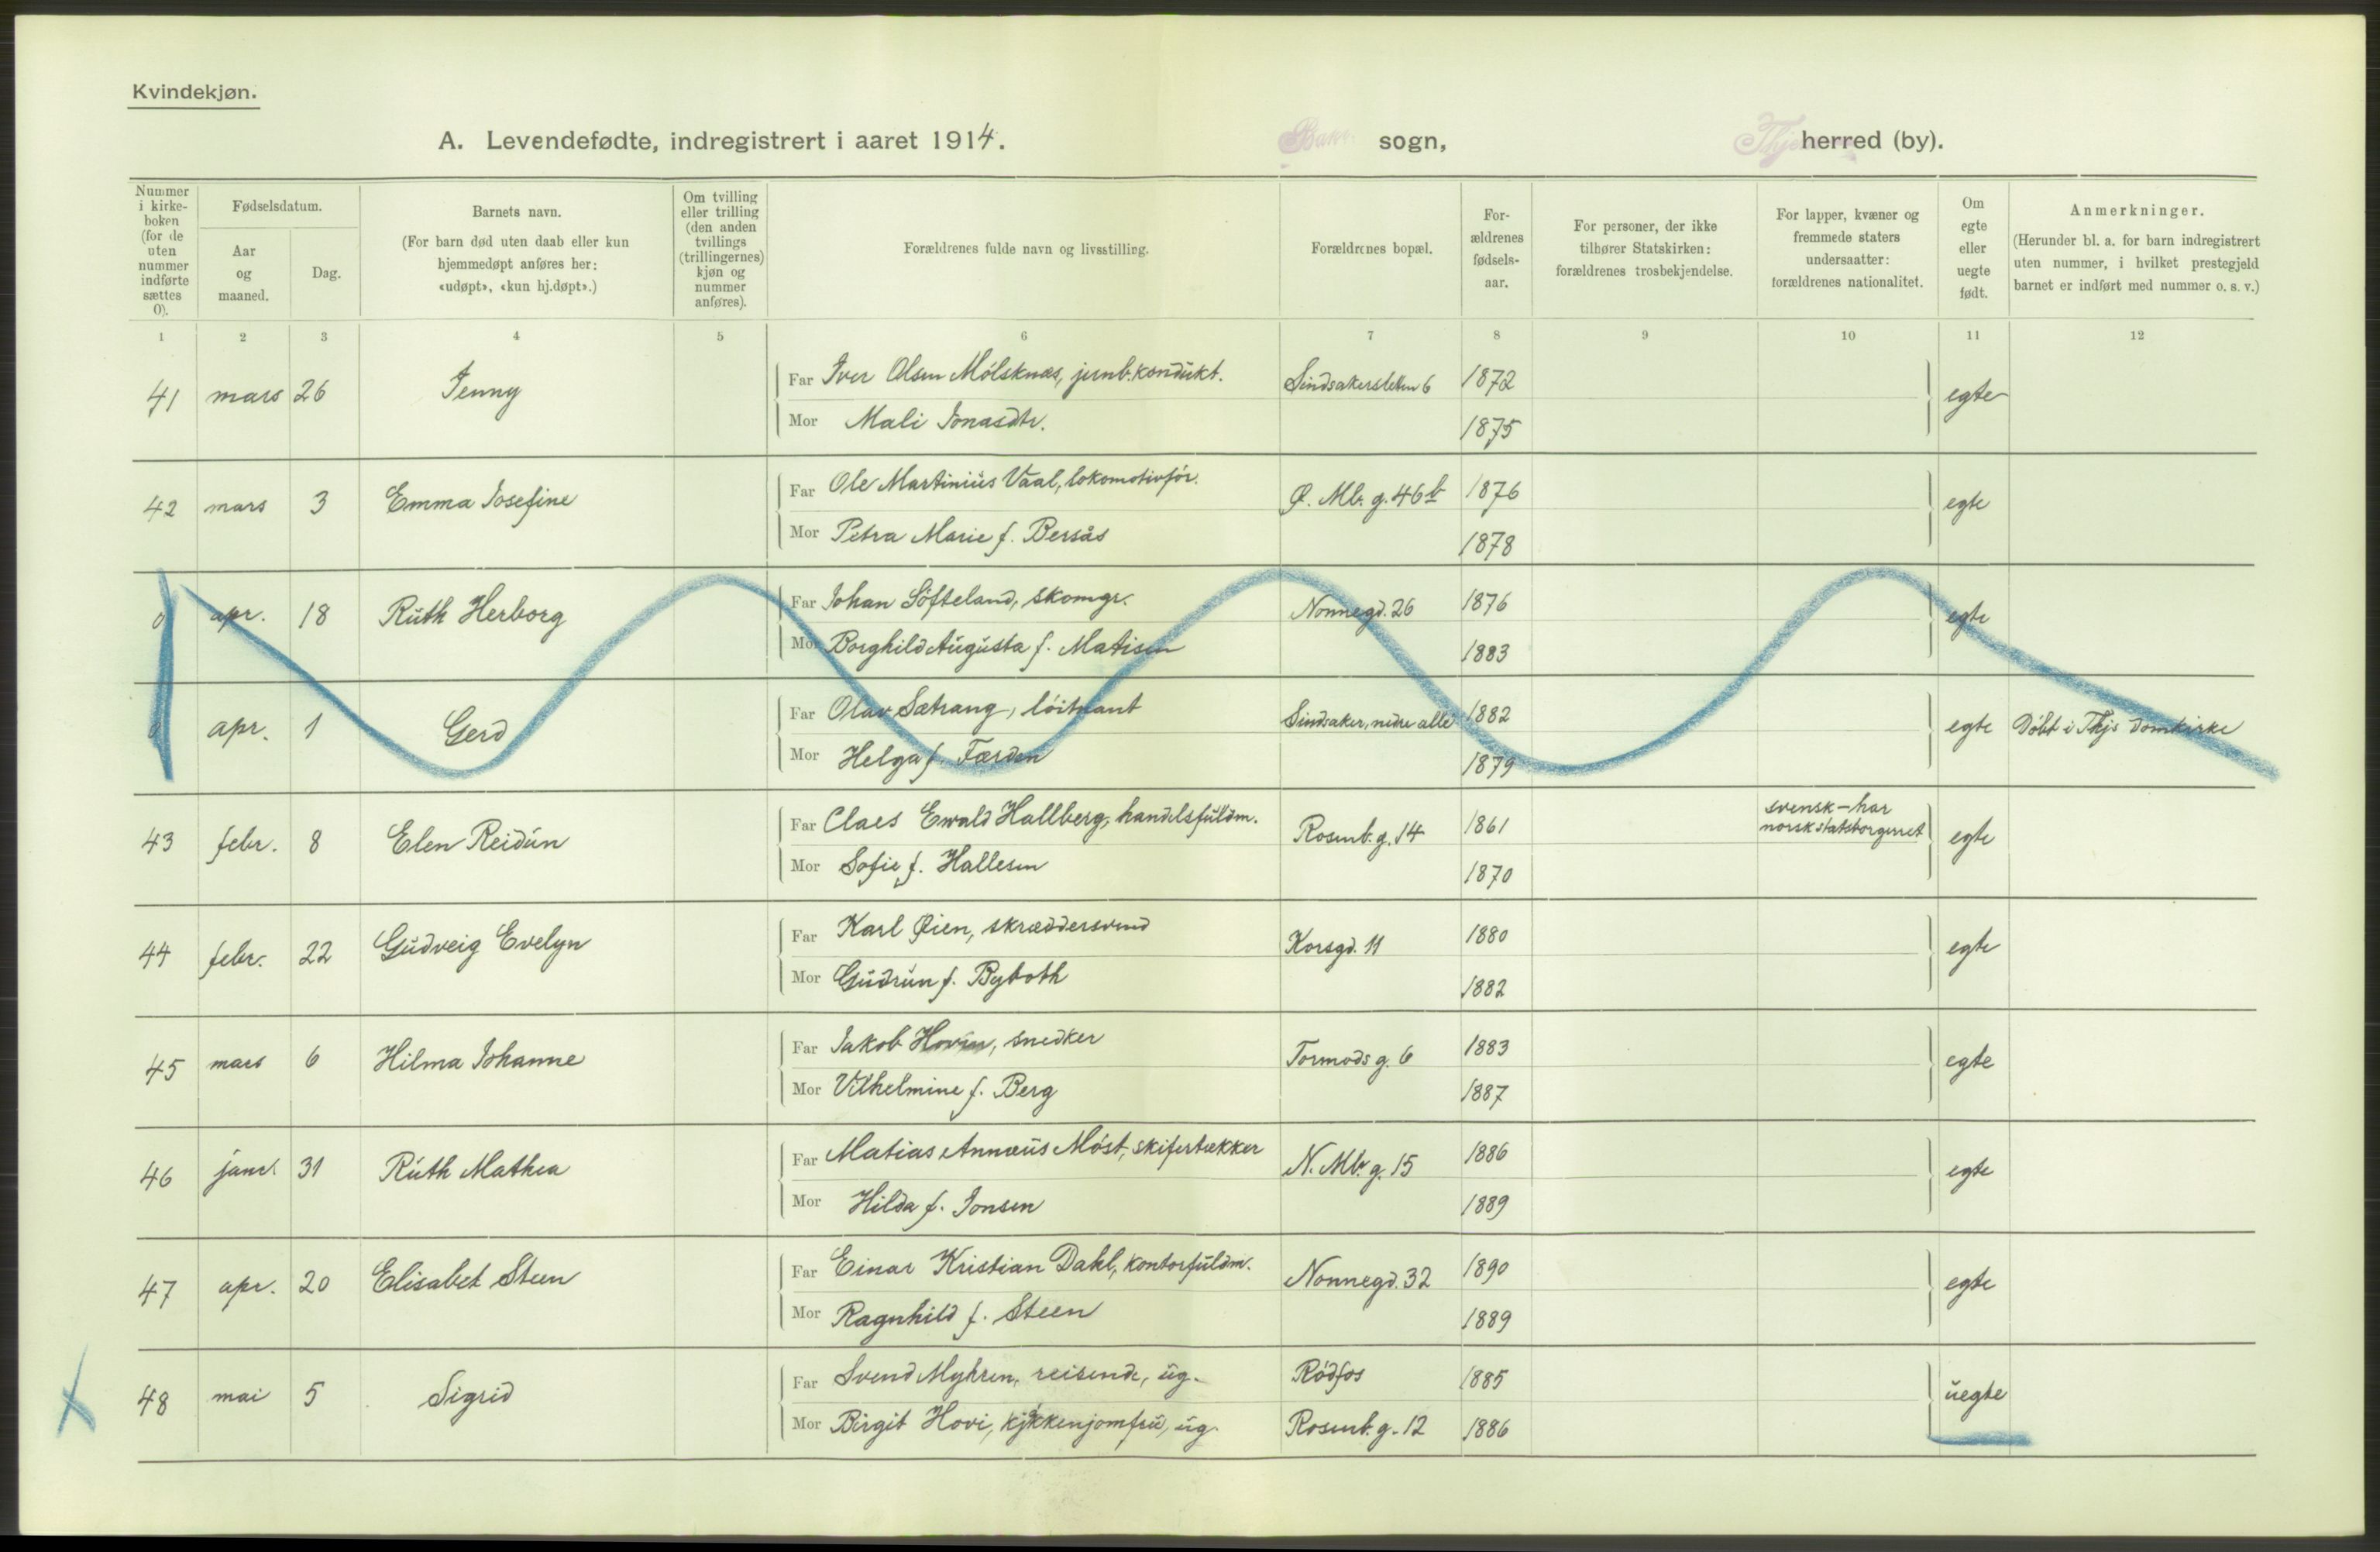 Kvindekjøn.
A. Levendefødte, indregistrert i aaret 1914. Bakke sogn, Thjem herred (by).
Nummer i kirke-boken (for de uten nummer indførte sættes 0).
Fødselsdatum.
Aar og maaned.
Dag.
Barnets navn.
(For barn død uten daab eller kun hjemmedøpt anføres her: «udøpt», «kun hj.døpt».)
Om tvilling eller trilling (den anden tvillings (trillingernes) kjøn og nummer anføres).
Forældrenes fulde navn og livsstilling.
Forældrenes bopæl.
For-ældrenes fødsels-aar.
For personer, der ikke tilhører Statskirken: forældrenes trosbekjendelse.
For lapper, kvæner og fremmede staters undersaatter: forældrenes nationalitet.
Om egte eller uegte født.
Anmerkninger.
(Herunder bl. a. for barn indregistrert uten nummer, i hvilket prestegjeld barnet er indført med nummer o. s. v.)
1 2 3 4 5 6 7 8 9 10 11 12
41 mars 26 Jenny Far Iver Olsen Mölsknæs, jernb.kondukt. Sindsakersletten 6 1872 egte
Mor Mali Jonasdtr. 1875
42 mars 3 Emma Josefine Far Ole Martinius Vaal, lokomotivför. Ø. Mb. g. 46 b 1876 egte
Mor Petra Marie f. Bersås 1878
0 apr. 18 Ruth Herborg Far Johan Söfteland, skomgr. Nonnegd. 26 1876 egte
Mor Borghild Augusta f. Matisen 1883
0 apr. 1 Gerd Far Olav Sætrang, löitnant Sindsaker, nedre allé 1882 egte Döbt i Thjs domkirke
Mor Helga f. Færden 1879
43 febr. 8 Elen Reidun Far Claes Ewald Hallberg, handelsfuldm. Rosenb. g. 14 1861 svensk – har norsk statsborgerret egte
Mor Sofie f. Hallesen 1870
44 febr. 22 Gudveig Evelyn Far Karl Øien, skræddersvend Korsgd. 11 1880 egte
Mor Gudrun f. Byboth 1882
45 mars 6 Hilma Johanne Far Jakob Hovin, snedker Tormods g. 6 1883 egte
Mor Vilhelmine f. Berg 1887
46 janr. 31 Ruth Mathea Far Matias Annæus Möst, skifertækker N. Mb. g. 15 1886 egte
Mor Hilda f. Jonsen 1889
47 apr. 20 Elisabet Steen Far Einar Kristian Dahl, kontorfuldm. Nonnegd. 32 1890 egte
Mor Ragnhild f. Steen 1889
48 mai 5 Sigrid Far Svend Myhren, reisende, ug. Rödfos 1885 uegte
Mor Birgit Hovi, kjökkenjomfru, ug. Rosenb. g. 12 1886